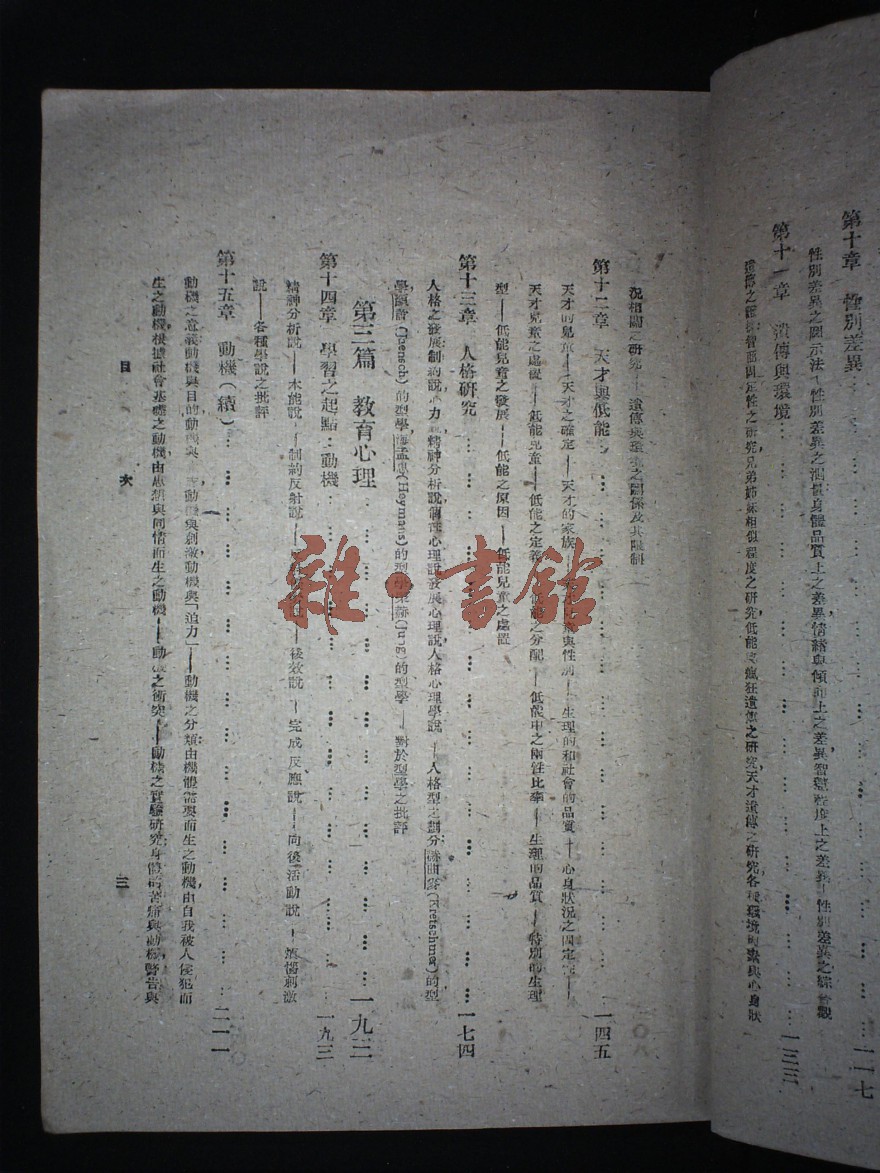 第十章　性別差異……一一七
性別差異之圖示法——性別差異之測量身體品質上之差異，情緒與傾向上之差異，智慧程度上之差異——性別差異之綜合觀
第十一章　遺傳與環境……一三三
兄弟姊妹相似程度之研究，低能與瘋狂遺傳之研究，天才遺傳之研究，各種環境因素與心身狀
況相關之研究——遺傳與環境之關係及其限制
第十二章　天才與低能……一四五
天才的兒童——天才之確定——天才的家族——與性別——生理的和社會的品質——心身狀況之固定
天才兒童之處置——低能兒童——低能之定義——低能之分配——低能中之兩性比率——生理的品質——特別的生理
型——低能兒童之發展——低能之原因——低能兒童之處置
第十三章　人格研究……一七四
人格之發展，制約說，精神分析說，個性心理說，發展心理說，人格心理學說——人格型之劃分 (Kretschmer)的型
學，(Jaensch)的型學，海孟思(Heymans)的型學，(Jung)的型學——對於型學之批評
第三篇　教育心理……一九三
第十四章　學習之起點：動機……一九三
精神分析說——本能說——制約反射說——後效說——完成反應說——向後活動說——煩惱刺激
說——各種學說之批評
第十五章　動機（續）……二一一
動機之意義，動機與目的，動機與，動機與刺激，動機與「迫力」——動機之分類，由機體需要而生之動機，由自我被人侵犯而
生之動機，根據社會基礎之動機，由思想與同情而生之動機——動機之衝突——動機之實驗研究，身體的苦痛與動機，警告與
目次
三
雜·書館